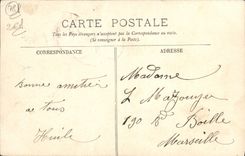 CARTE POSTALE
Tous les Pays étrangers n'acceptent pas la Correspondance au recto.
(Se renseigner à la Poste).
CORRESPONDANCE
ADRESSE
Bonne amitiés
de tous
Madame
190 Bd
Marseille